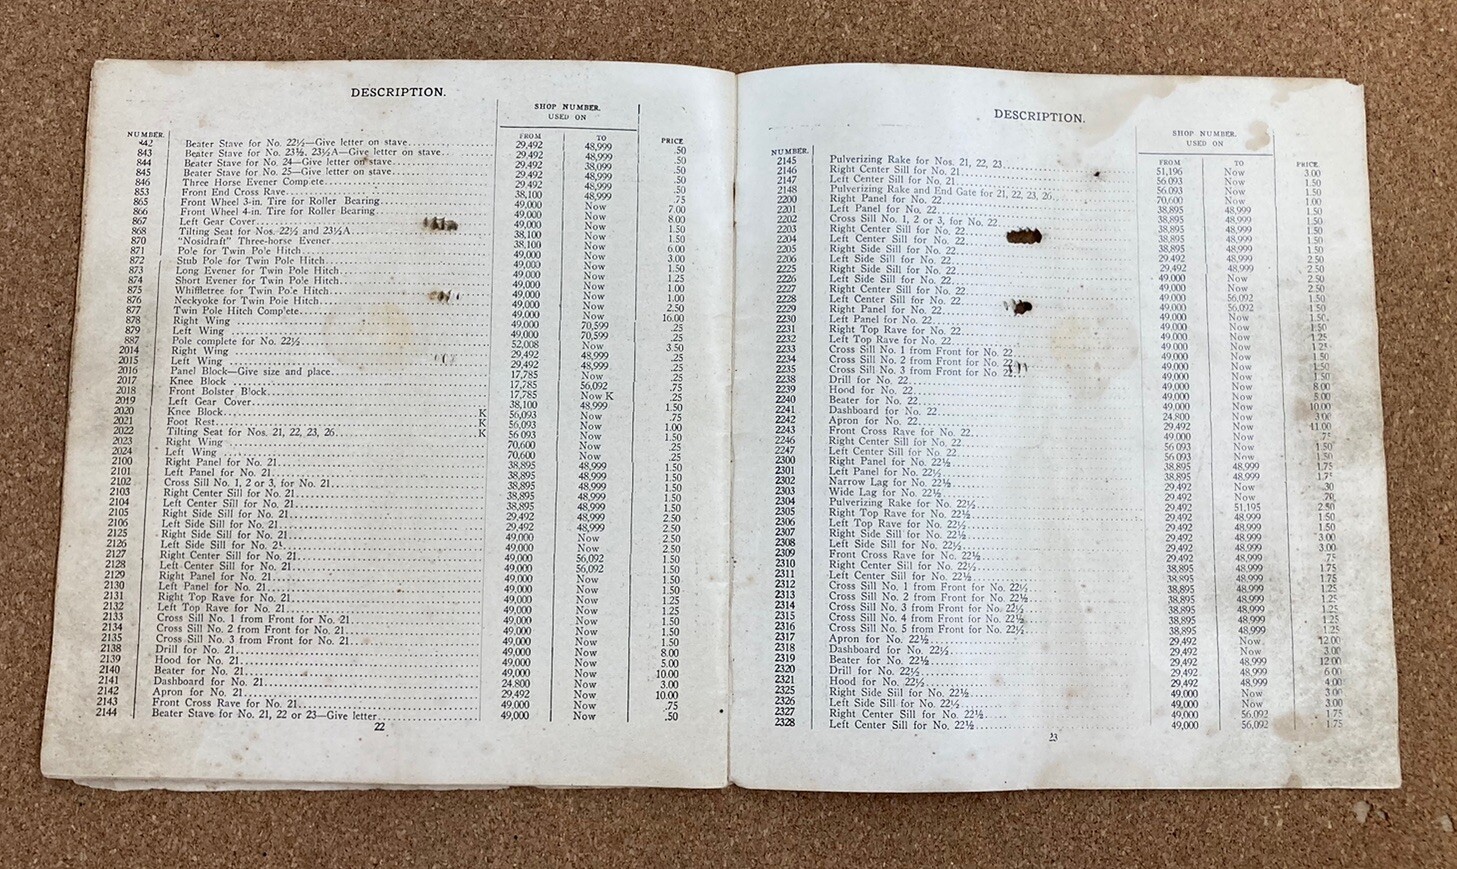 DESCRIPTION.
SHOP NUMBER.
USED ON
NUMBER. FROM TO PRICE
842 Beater Stave for No. 22½—Give letter on stave 29,492 48,999 .50
843 Beater Stave for No. 23½, 23½A—Give letter on stave 29,492 48,999 .50
844 Beater Stave for No. 24—Give letter on stave 29,492 38,099 .50
845 Beater Stave for No. 25—Give letter on stave 29,492 48,999 .50
846 Three Horse Evener Complete 29,492 48,999 .50
853 Front End Cross Rave 38,100 48,999 .75
865 Front Wheel 3-in. Tire for Roller Bearing 49,000 Now 7.00
866 Front Wheel 4-in. Tire for Roller Bearing 49,000 Now 8.00
867 Left Gear Cover 49,000 Now 1.50
868 Tilting Seat for Nos. 22½ and 23½A 38,100 Now 1.50
870 "Nosidraft" Three-horse Evener 38,100 Now 6.00
871 Pole for Twin Pole Hitch 49,000 Now 3.00
872 Stub Pole for Twin Pole Hitch 49,000 Now 1.50
873 Long Evener for Twin Pole Hitch 49,000 Now 1.25
874 Short Evener for Twin Pole Hitch 49,000 Now 1.00
875 Whiffletree for Twin Pole Hitch 49,000 Now 1.00
876 Neckyoke for Twin Pole Hitch 49,000 Now 2.50
877 Twin Pole Hitch Complete 49,000 Now 16.00
878 Right Wing 49,000 70,599 .25
879 Left Wing 49,000 70,599 .25
887 Pole complete for No. 22½ 52,008 Now 3.50
2014 Right Wing 29,492 48,999 .25
2015 Left Wing 29,492 48,999 .25
2016 Panel Block—Give size and place 17,785 Now .25
2017 Knee Block 17,785 56,092 .75
2018 Front Bolster Block 17,785 Now K .25
2019 Left Gear Cover 38,100 48,999 1.50
2020 Knee Block K 56,093 Now .75
2021 Foot Rest K 56,093 Now 1.00
2022 Tilting Seat for Nos. 21, 22, 23, 26 K 56 093 Now 1.50
2023 Right Wing 70,600 Now .25
2024 Left Wing 70,600 Now .25
2100 Right Panel for No. 21 38,895 48,999 1.50
2101 Left Panel for No. 21 38,895 48,999 1.50
2102 Cross Sill No. 1, 2 or 3, for No. 21 38,895 48,999 1.50
2103 Right Center Sill for No. 21 38,895 48,999 1.50
2104 Left Center Sill for No. 21 38,895 48,999 1.50
2105 Right Side Sill for No. 21 29,492 48,999 2.50
2106 Left Side Sill for No. 21 29,492 48,999 2.50
2125 Right Side Sill for No. 21 49,000 Now 2.50
2126 Left Side Sill for No. 21 49,000 Now 2.50
2127 Right Center Sill for No. 21 49,000 56,092 1.50
2128 Left Center Sill for No. 21 49,000 56,092 1.50
2129 Right Panel for No. 21 49,000 Now 1.50
2130 Left Panel for No. 21 49,000 Now 1.50
2131 Right Top Rave for No. 21 49,000 Now 1.25
2132 Left Top Rave for No. 21 49,000 Now 1.25
2133 Cross Sill No. 1 from Front for No. 21 49,000 Now 1.50
2134 Cross Sill No. 2 from Front for No. 21 49,000 Now 1.50
2135 Cross Sill No. 3 from Front for No. 21 49,000 Now 1.50
2138 Drill for No. 21 49,000 Now 8.00
2139 Hood for No. 21 49,000 Now 5.00
2140 Beater for No. 21 49,000 Now 10.00
2141 Dashboard for No. 21 24,800 Now 3.00
2142 Apron for No. 21 29,492 Now 10.00
2143 Front Cross Rave for No. 21 49,000 Now .75
2144 Beater Stave for No. 21, 22 or 23—Give letter 49,000 Now .50
22
DESCRIPTION.
SHOP NUMBER.
USED ON
NUMBER. FROM TO PRICE.
2145 Pulverizing Rake for Nos. 21, 22, 23 51,196 Now 3.00
2146 Right Center Sill for No. 21 56 093 Now 1.50
2147 Left Center Sill for No. 21 56 093 Now 1.50
2148 Pulverizing Rake and End Gate for 21, 22, 23, 26 70,600 Now 1.00
2200 Right Panel for No. 22 38,895 48,999 1.50
2201 Left Panel for No. 22 38,895 48,999 1.50
2202 Cross Sill No. 1, 2 or 3, for No. 22 38,895 48,999 1.50
2203 Right Center Sill for No. 22 38,895 48,999 1.50
2204 Left Center Sill for No. 22 38,895 48,999 1.50
2205 Right Side Sill for No. 22 29,492 48,999 2.50
2206 Left Side Sill for No. 22 29,492 48,999 2.50
2225 Right Side Sill for No. 22 49,000 Now 2.50
2226 Left Side Sill for No. 22 49,000 Now 2.50
2227 Right Center Sill for No. 22 49,000 56,092 1.50
2228 Left Center Sill for No. 22 49,000 56,092 1.50
2229 Right Panel for No. 22 49,000 Now 1.50
2230 Left Panel for No. 22 49,000 Now 1.50
2231 Right Top Rave for No. 22 49,000 Now 1.25
2232 Left Top Rave for No. 22 49,000 Now 1.25
2233 Cross Sill No. 1 from Front for No. 22 49,000 Now 1.50
2234 Cross Sill No. 2 from Front for No. 22 49,000 Now 1.50
2235 Cross Sill No. 3 from Front for No. 22 49,000 Now 1.50
2238 Drill for No. 22 49,000 Now 8.00
2239 Hood for No. 22 49,000 Now 5.00
2240 Beater for No. 22 49,000 Now 10.00
2241 Dashboard for No. 22 24,800 Now 3.00
2242 Apron for No. 22 29,492 Now 11.00
2243 Front Cross Rave for No. 22 49,000 Now .75
2246 Right Center Sill for No. 22 56 093 Now 1.50
2247 Left Center Sill for No. 22 56 093 Now 1.50
2300 Right Panel for No. 22½ 38,895 48,999 1.75
2301 Left Panel for No. 22½ 38,895 48,999 1.75
2302 Narrow Lag for No. 22½ 29,492 Now .30
2303 Wide Lag for No. 22½ 29,492 Now .70
2304 Pulverizing Rake for No. 22½ 29,492 51,195 2.50
2305 Right Top Rave for No. 22½ 29,492 48,999 1.50
2306 Left Top Rave for No. 22½ 29,492 48,999 1.50
2307 Right Side Sill for No. 22½ 29,492 48,999 3.00
2308 Left Side Sill for No. 22½ 29,492 48,999 3.00
2309 Front Cross Rave for No. 22½ 29,492 48,999 .75
2310 Right Center Sill for No. 22½ 38,895 48,999 1.75
2311 Left Center Sill for No. 22½ 38,895 48,999 1.75
2312 Cross Sill No. 1 from Front for No. 22½ 38,895 48,999 1.25
2313 Cross Sill No. 2 from Front for No. 22½ 38,895 48,999 1.25
2314 Cross Sill No. 3 from Front for No. 22½ 38,895 48,999 1.25
2315 Cross Sill No. 4 from Front for No. 22½ 38,895 48,999 1.25
2316 Cross Sill No. 5 from Front for No. 22½ 38,895 48,999 1.25
2317 Apron for No. 22½ 29,492 Now 12.00
2318 Dashboard for No. 22½ 29,492 Now 3.00
2319 Beater for No. 22½ 29,492 48,999 12.00
2320 Drill for No. 22½ 29,492 48,999 6.00
2321 Hood for No. 22½ 29,492 48,999 4.00
2325 Right Side Sill for No. 22½ 49,000 Now 3.00
2326 Left Side Sill for No. 22½ 49,000 Now 3.00
2327 Right Center Sill for No. 22½ 49,000 56,092 1.75
2328 Left Center Sill for No. 22½ 49,000 56,092 1.75
23